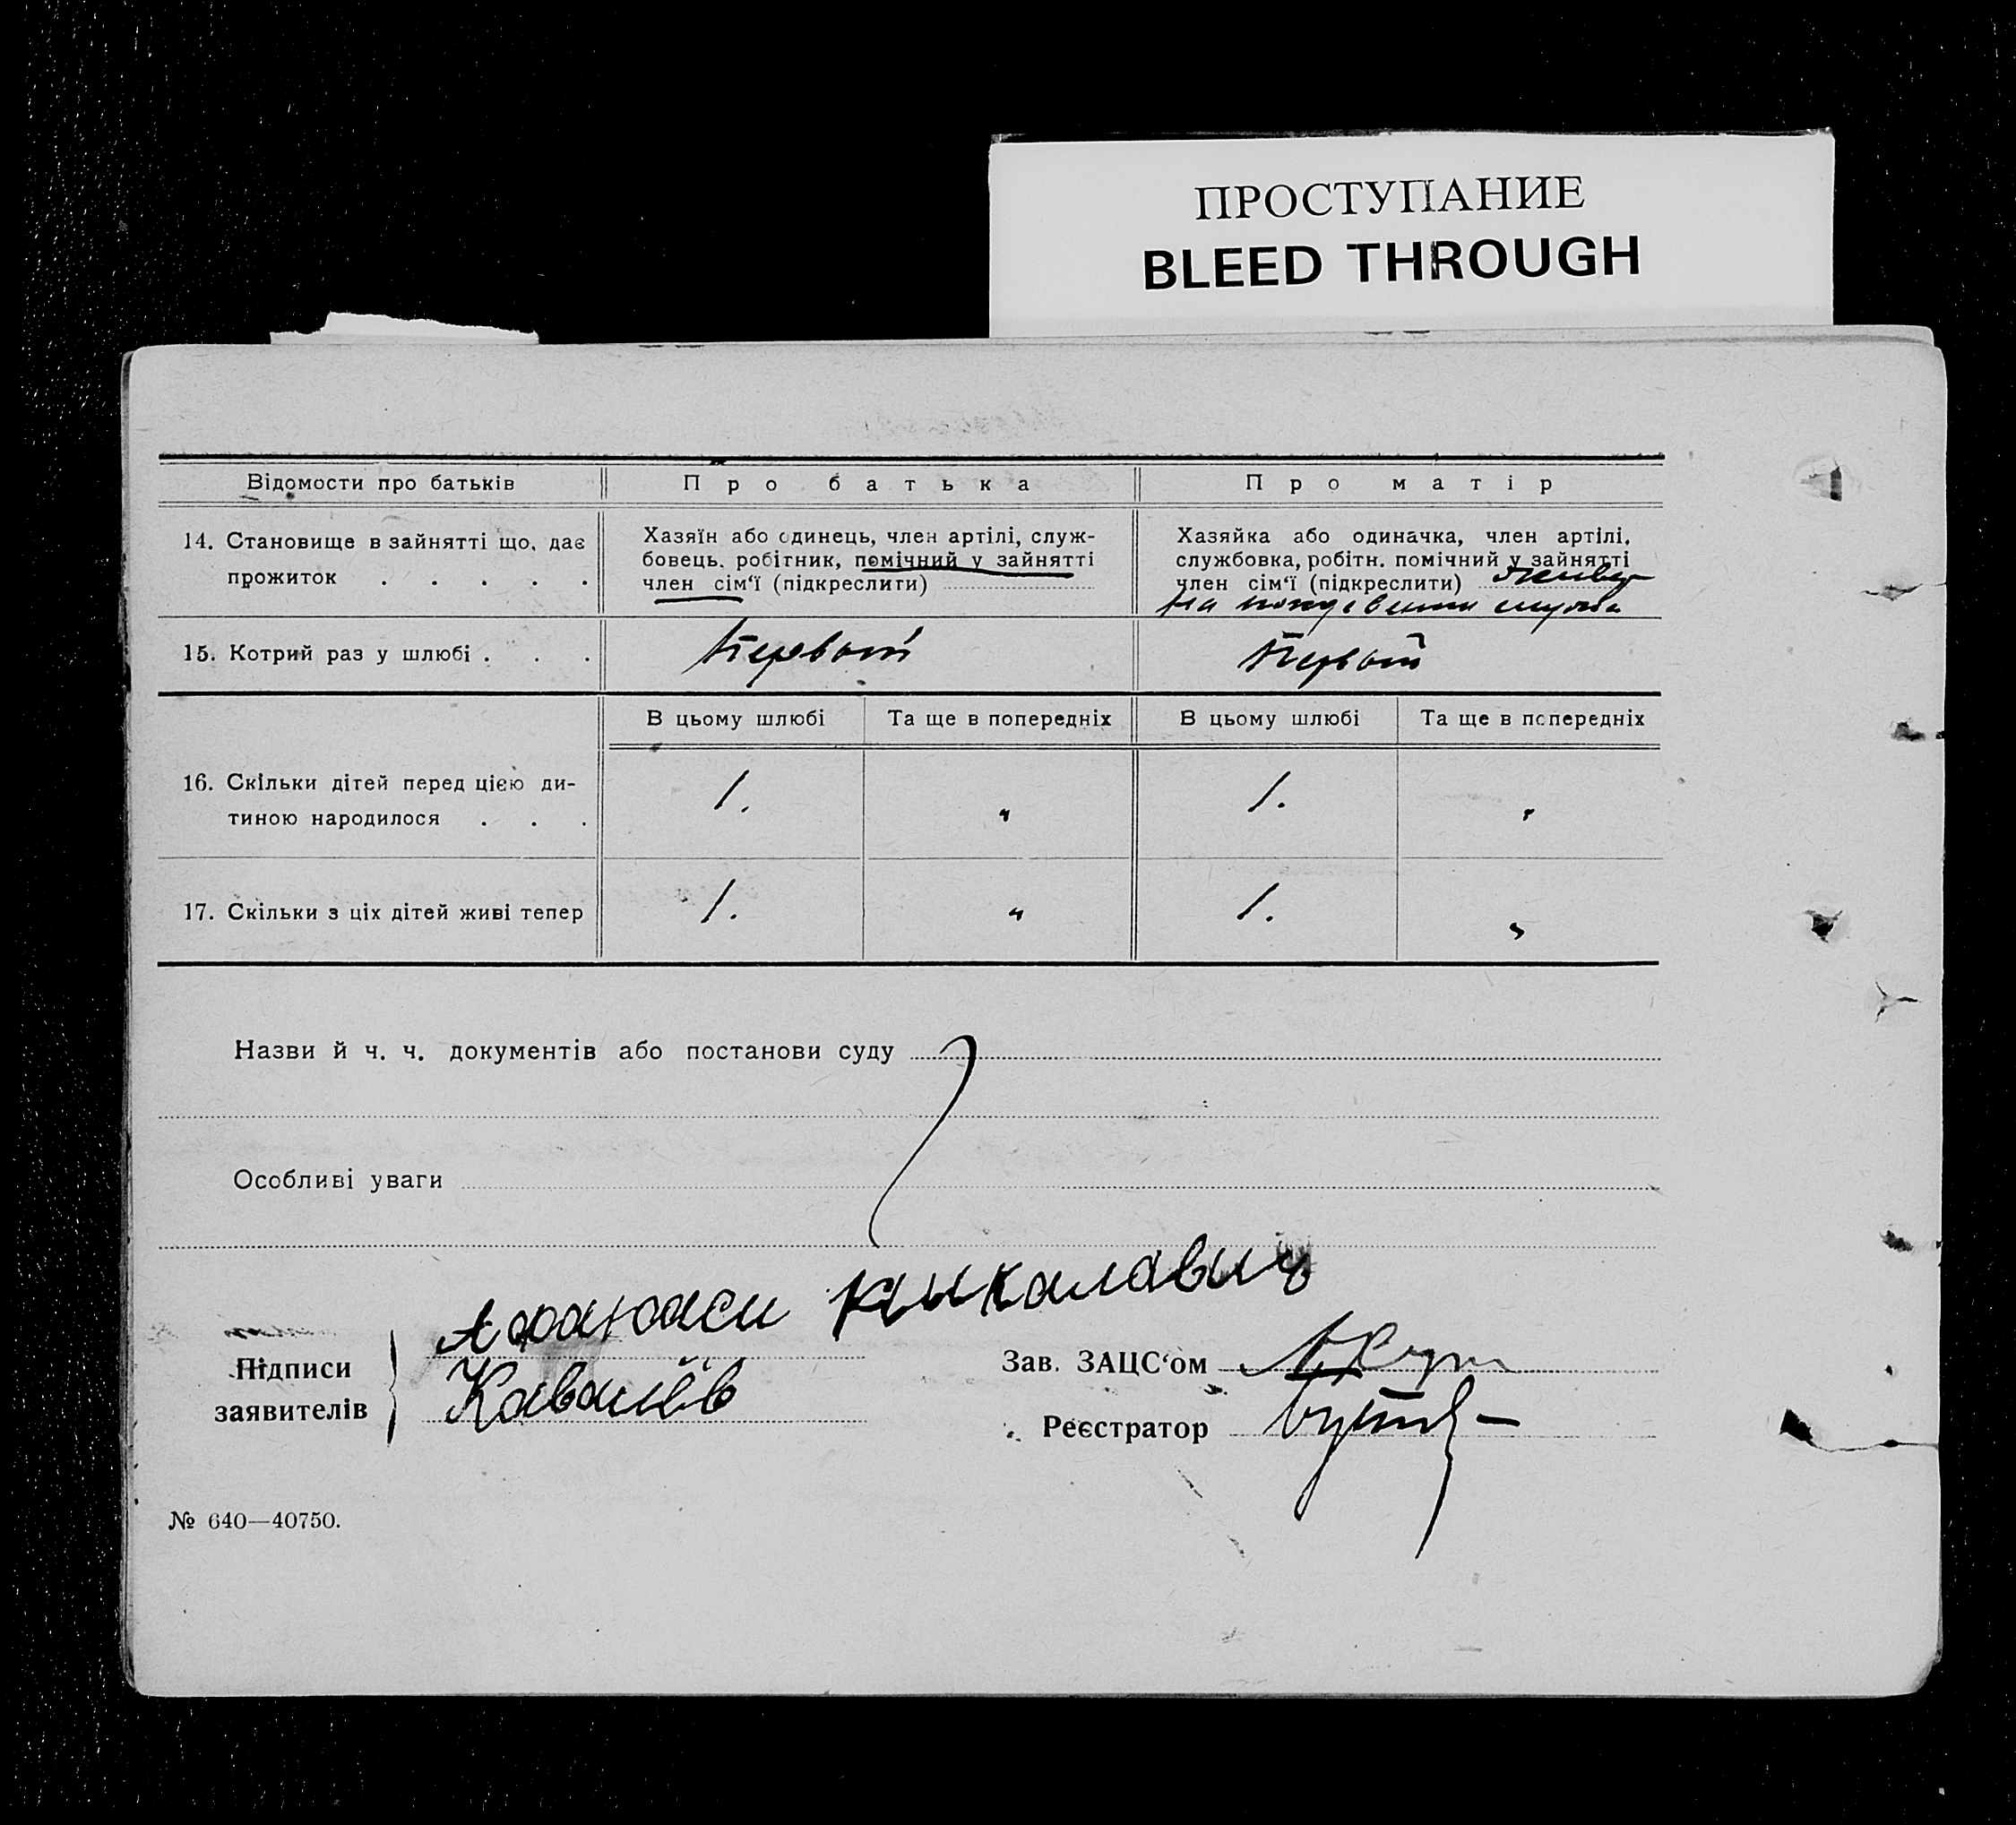 ПРОСТУПАНИЕ
BLEED THROUGH
Відомости про батьків
Про батька
Про матір
14. Становище в зайнятті що, дає
прожиток . . . . .
Хазяїн або одинець, член артілі, служ-
бовець, робітник, помічний у зайнятті
член сім'ї (підкреслити)
Хазяйка або одиначка, член артілі,
службовка, робітн. помічний у зайнятті
член сім'ї (підкреслити)
на
15. Котрий раз у шлюбі . . .
Первый
Первый
В цьому шлюбі
Та ще в попередніх
В цьому шлюбі
Та ще в попередніх
16. Скільки дітей перед цією ди-
тиною народилося . . .
1.
"
1.
"
17. Скільки з ціх дітей живі тепер
1.
"
1.
"
Назви й ч. ч. документів або постанови суду
Особливі уваги
Афанаси
Підписи
заявителів
Зав. ЗАЦС'ом
Реєстратор
№ 640—40750.